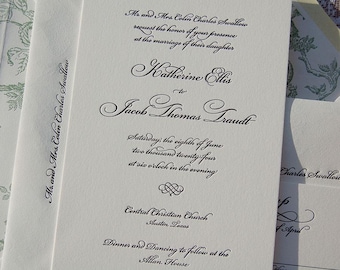 Mr. and Mrs. Colin Charles Swallow
request the honor if your presence
at the marriage of their daughter
Katherine Ellis
to
Jacob Thomas Traudt
Saturday, the eighth of June
two thousand twenty-four
at six o'clock in the evening
Central Christian Church
Austin, Texas
Dinner and Dancing to follow at the
Allan House
Mr. and Mrs. Colin Charles Swallow
Charles Swallow
of April